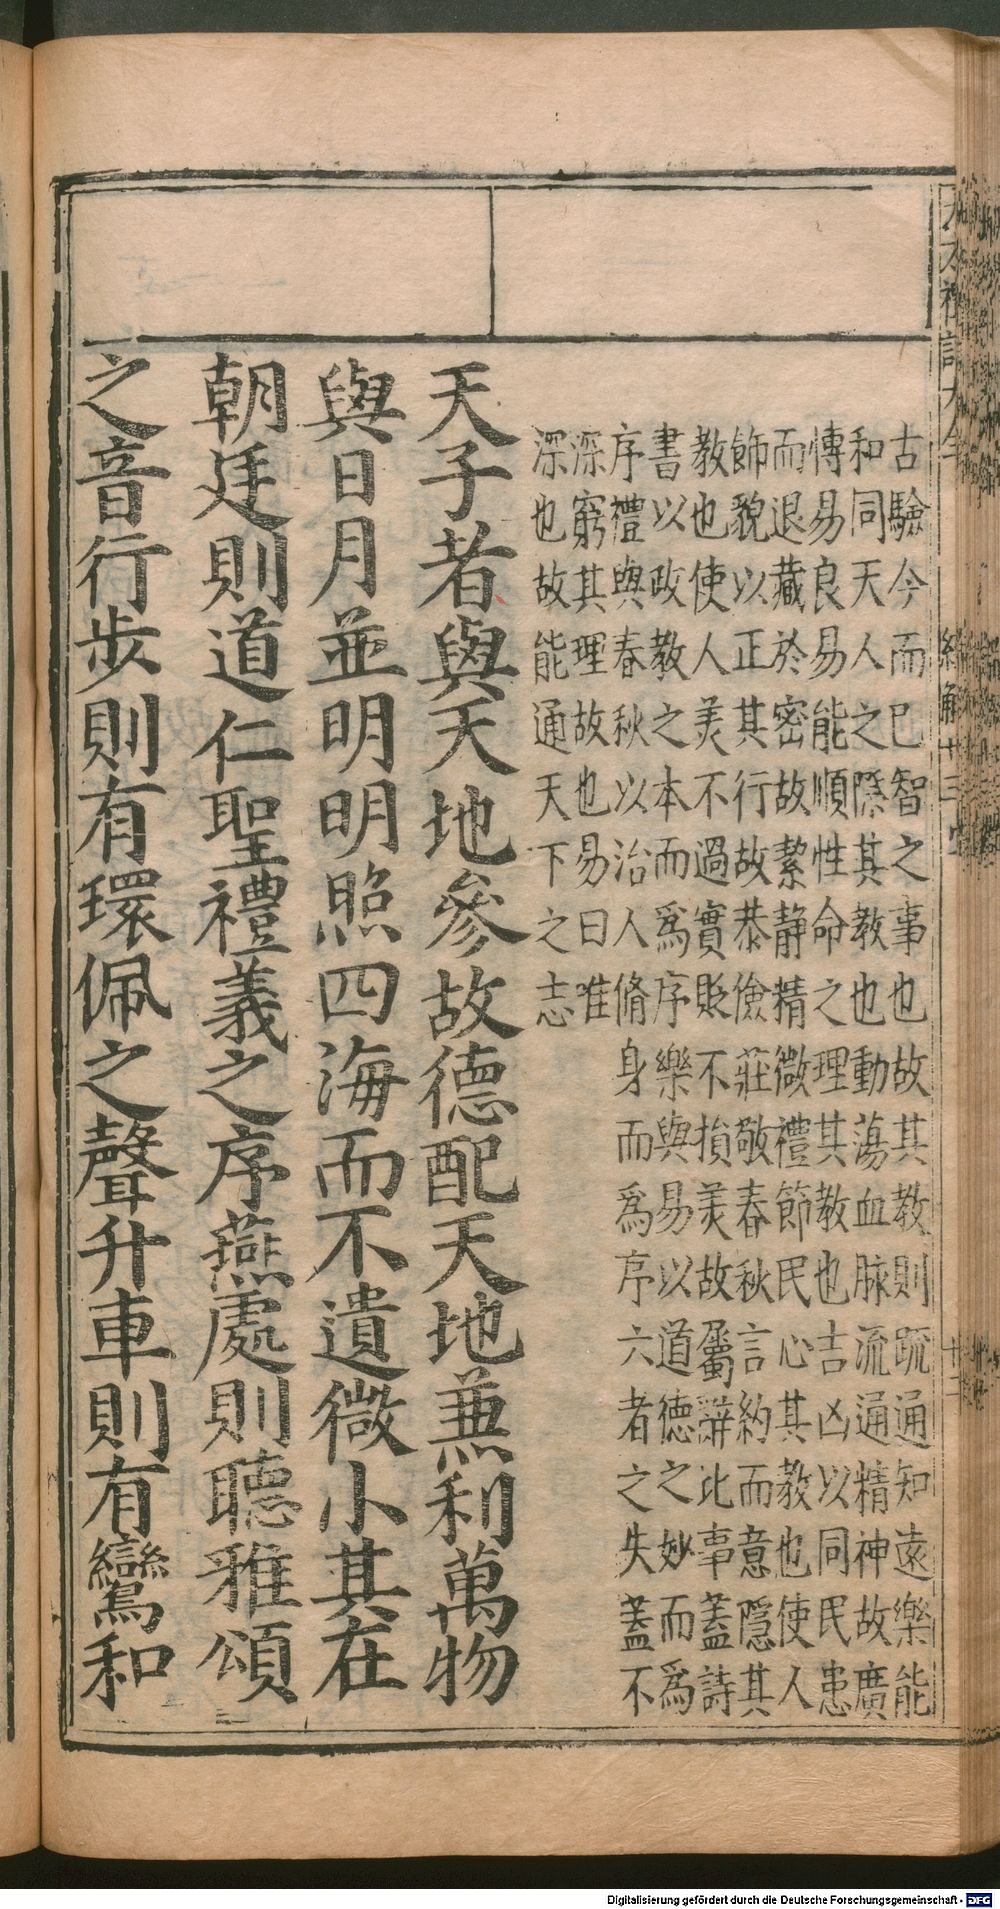 古驗今而已智之事也故其教則疏通知遠樂能
和同天人之際其教也動蕩血脉流通精神故廣
愽易良易能順性命之理其教也吉凶以同民患
而退藏於密故絜静精微禮節民心其教也使人
飾貌以正其行故恭儉莊敬春秋言約而意隱其
教也使人羙不過實貶不損羙故屬辭比事蓋詩
書以政教之本而爲序樂與易以道德之妙而爲
序禮與春秋以治人脩身而爲序六者之失蓋不
深窮其理故也易曰唯
深也故能通天下之志
天子者與天地參故德配天地兼利萬物
與日月並明明照四海而不遺微小其在
朝廷則道仁聖禮義之序燕處則聽雅頌
之音行步則有環佩之聲升車則有鸞和
Digitalisierung gefördert durch die Deutsche Forschungsgemeinschaft - DFG